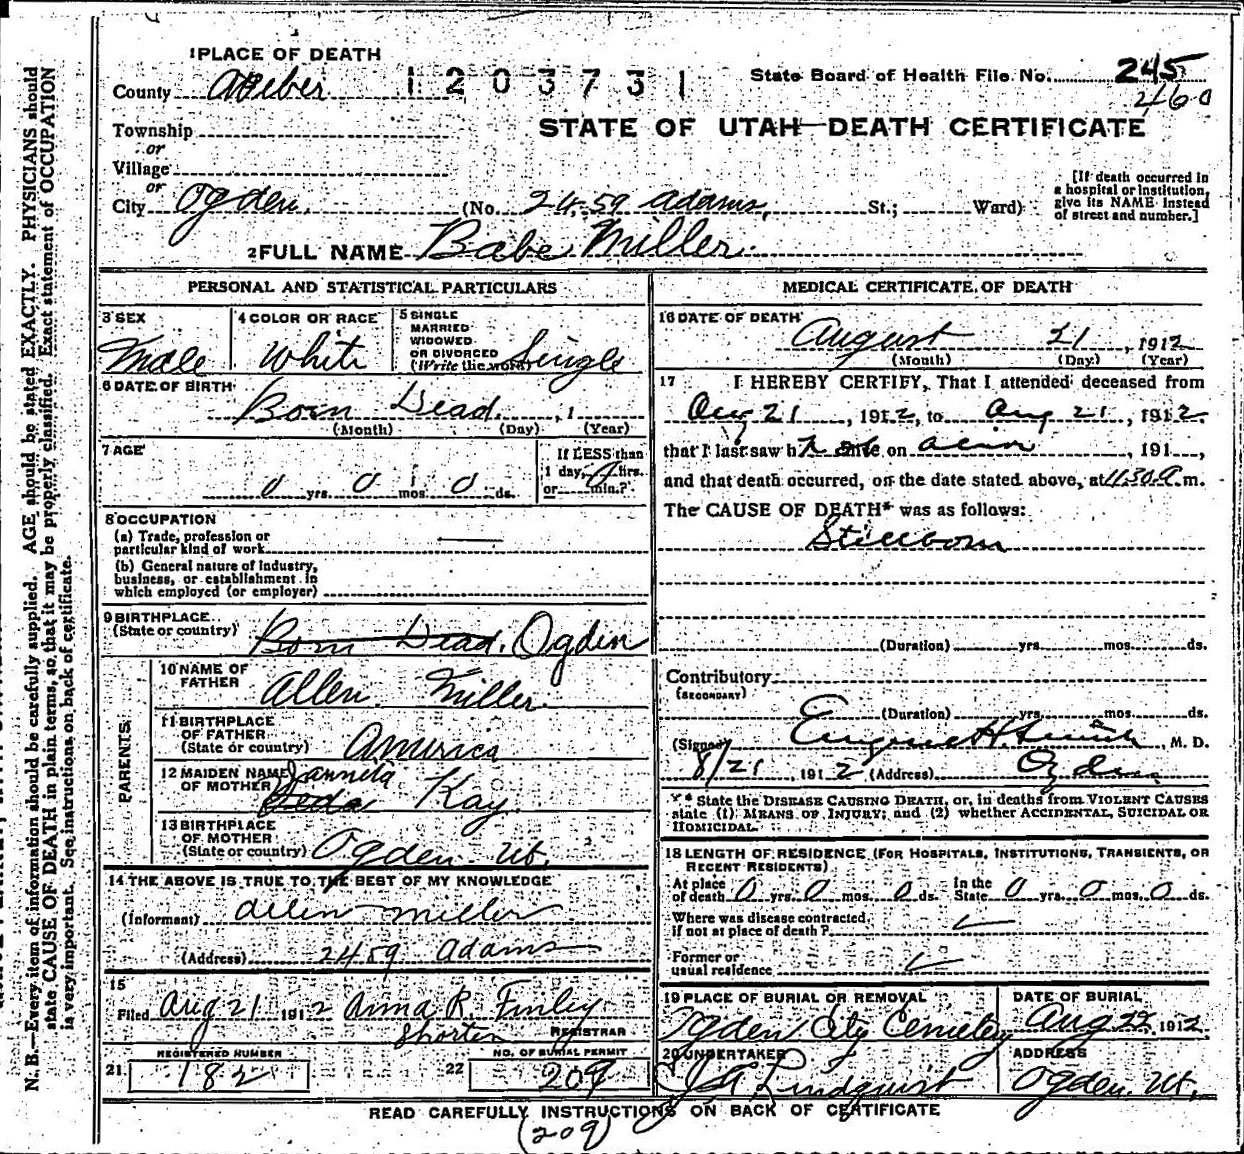 1 PLACE OF DEATH
County Weber 1 2 0 3 7 3 1 State Board of Health File No. 245
2460
Township
or
STATE OF UTAH—DEATH CERTIFICATE
Village
or
City Ogden (No. 2459 Adams, St.; Ward)
[If death occurred in
a hospital or institution,
give its NAME instead
of street and number.]
2 FULL NAME Babe Miller
PERSONAL AND STATISTICAL PARTICULARS
3 SEX
Male
4 COLOR OR RACE
White
5 SINGLE
MARRIED
WIDOWED
OR DIVORCED
(Write the word) Single
6 DATE OF BIRTH
Born Dead, 1
(Month) (Day) (Year)
7 AGE
0 yrs. 0 mos. 0 ds.
If LESS than
1 day, 0 hrs.
or min.?
8 OCCUPATION
(a) Trade, profession or
particular kind of work
(b) General nature of industry,
business, or establishment in
which employed (or employer)
9 BIRTHPLACE
(State or country) Born Dead. Ogden
PARENTS
10 NAME OF
FATHER Allen Miller
11 BIRTHPLACE
OF FATHER
(State or country) America
12 MAIDEN NAME
OF MOTHER Kay
13 BIRTHPLACE
OF MOTHER
(State or country) Ogden Ut.
14 THE ABOVE IS TRUE TO THE BEST OF MY KNOWLEDGE
(Informant) Allen Miller
(Address) 2459 Adams
15
Filed Aug 21 1912 Anna R. Finley
Shorten REGISTRAR
REGISTERED NUMBER
21 182
NO. OF BURIAL PERMIT
22 209
MEDICAL CERTIFICATE OF DEATH
16 DATE OF DEATH
August 21, 1912
(Month) (Day) (Year)
17 I HEREBY CERTIFY, That I attended deceased from
Aug 21, 1912, to Aug 21, 1912.
that I last saw h on, 191 ,
and that death occurred, on the date stated above, at 11.30 a. m.
The CAUSE OF DEATH* was as follows:
Stillborn
(Duration) yrs. mos. ds.
Contributory
(SECONDARY)
(Duration) yrs. mos. ds.
(Signed) Eugene H. Smith, M. D.
8/21, 1912 (Address) Ogden
* State the DISEASE CAUSING DEATH, or, in deaths from VIOLENT CAUSES
state (1) MEANS OF INJURY; and (2) whether ACCIDENTAL, SUICIDAL OR
HOMICIDAL.
18 LENGTH OF RESIDENCE (FOR HOSPITALS, INSTITUTIONS, TRANSIENTS, OR
RECENT RESIDENTS)
At place
of death 0 yrs. 0 mos. 0 ds. In the
State 0 yrs. 0 mos. 0 ds.
Where was disease contracted,
if not at place of death?
Former or
usual residence
19 PLACE OF BURIAL OR REMOVAL
Ogden City Cemetery
DATE OF BURIAL
Aug 22, 1912.
20 UNDERTAKER
Lindquist
ADDRESS
Ogden Ut.
READ CAREFULLY INSTRUCTIONS ON BACK OF CERTIFICATE
(209)
N. B.—Every item of information should be carefully supplied. AGE should be stated EXACTLY. PHYSICIANS should
state CAUSE OF DEATH in plain terms, so that it may be properly classified. Exact statement of OCCUPATION
is very important. See instructions on back of certificate.